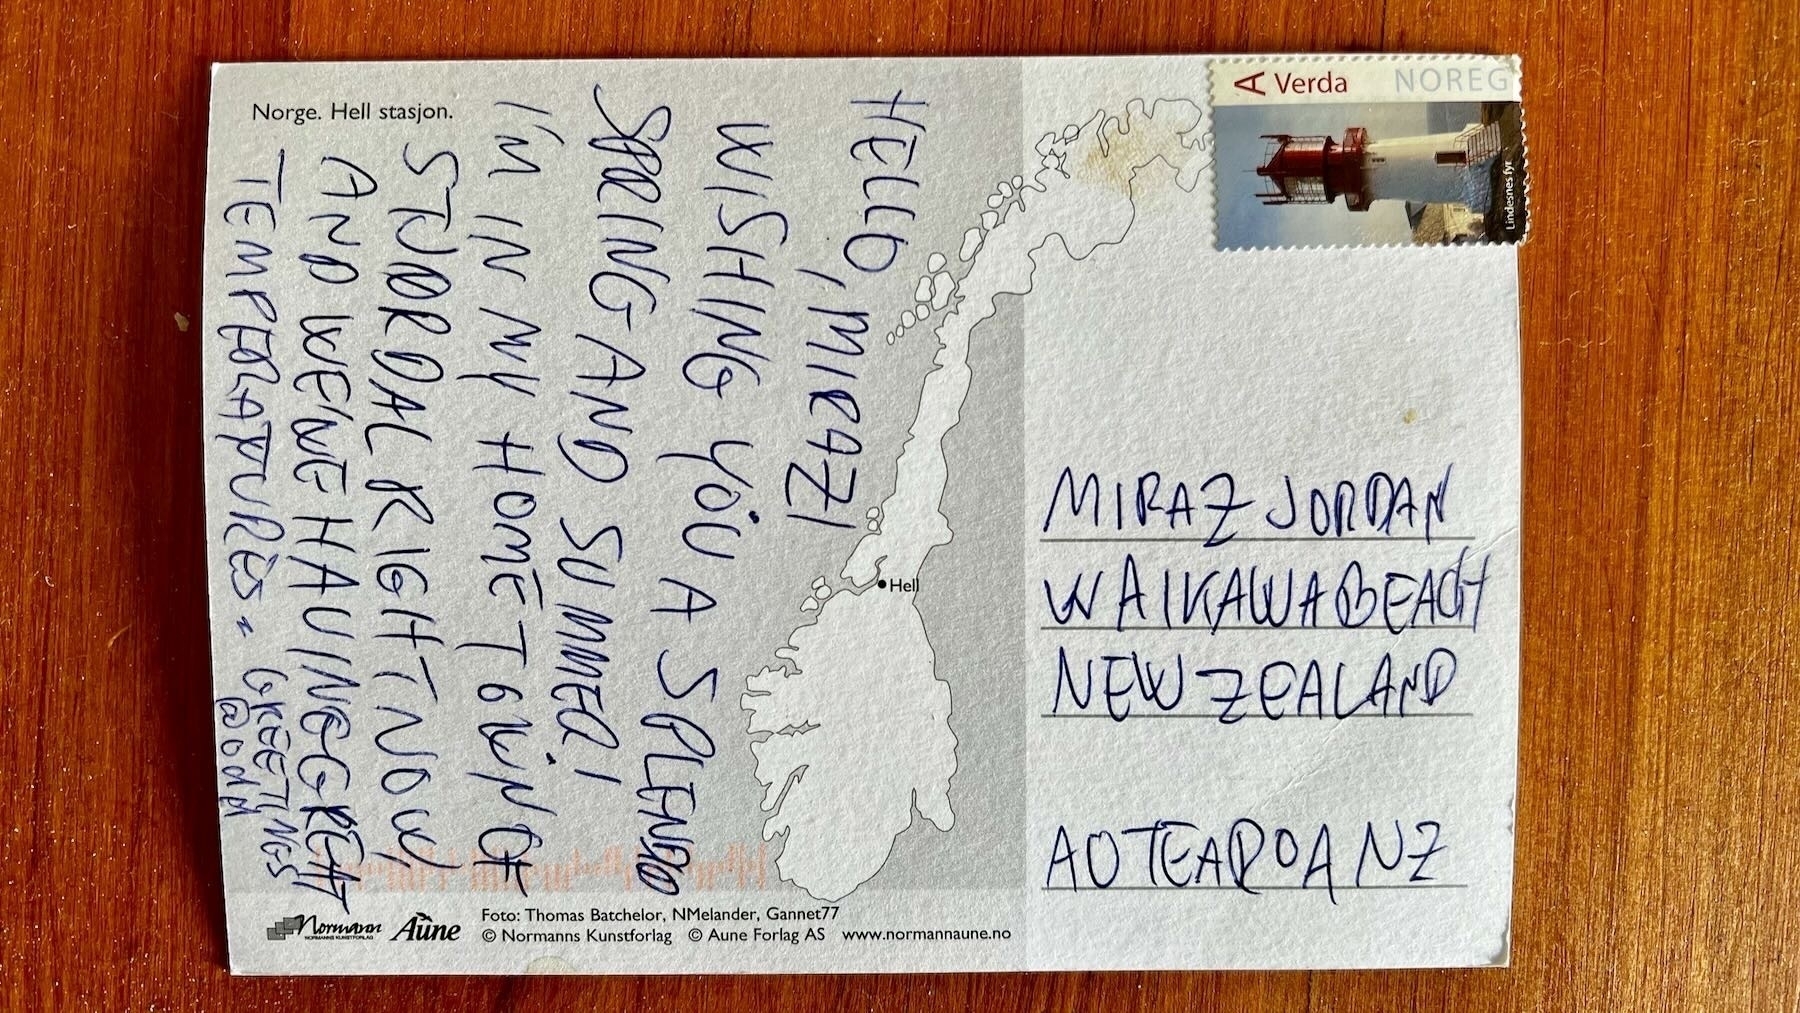 Norge. Hell stasjon.
HELLO, MIRAZ!
WISHING YOU A SPLENDID
SPRING AND SUMMER!
I'M IN MY HOMETOWN OF
STJØRDAL RIGHT NOW,
AND WE'VE HAVING GREAT
TEMPERATURES. GREETINGS
@odd
Hell
A Verda NOREG
Lindesnes fyr
MIRAZ JORDAN
WAIKAWA BEACH
NEW ZEALAND
AOTEAROA NZ
Normann
NORMANNS KUNSTFORLAG
Aune
Foto: Thomas Batchelor, NMelander, Gannet77
© Normanns Kunstforlag © Aune Forlag AS www.normannaune.no